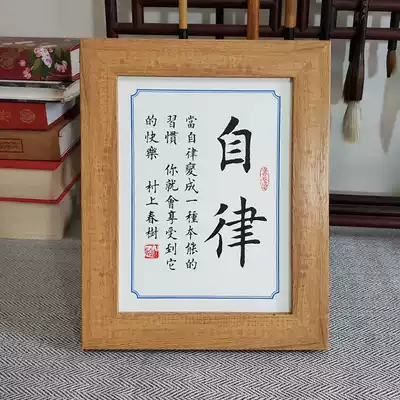 自律
當自律變成一種本能的
習慣 你就會享受到它
的快樂 村上春樹